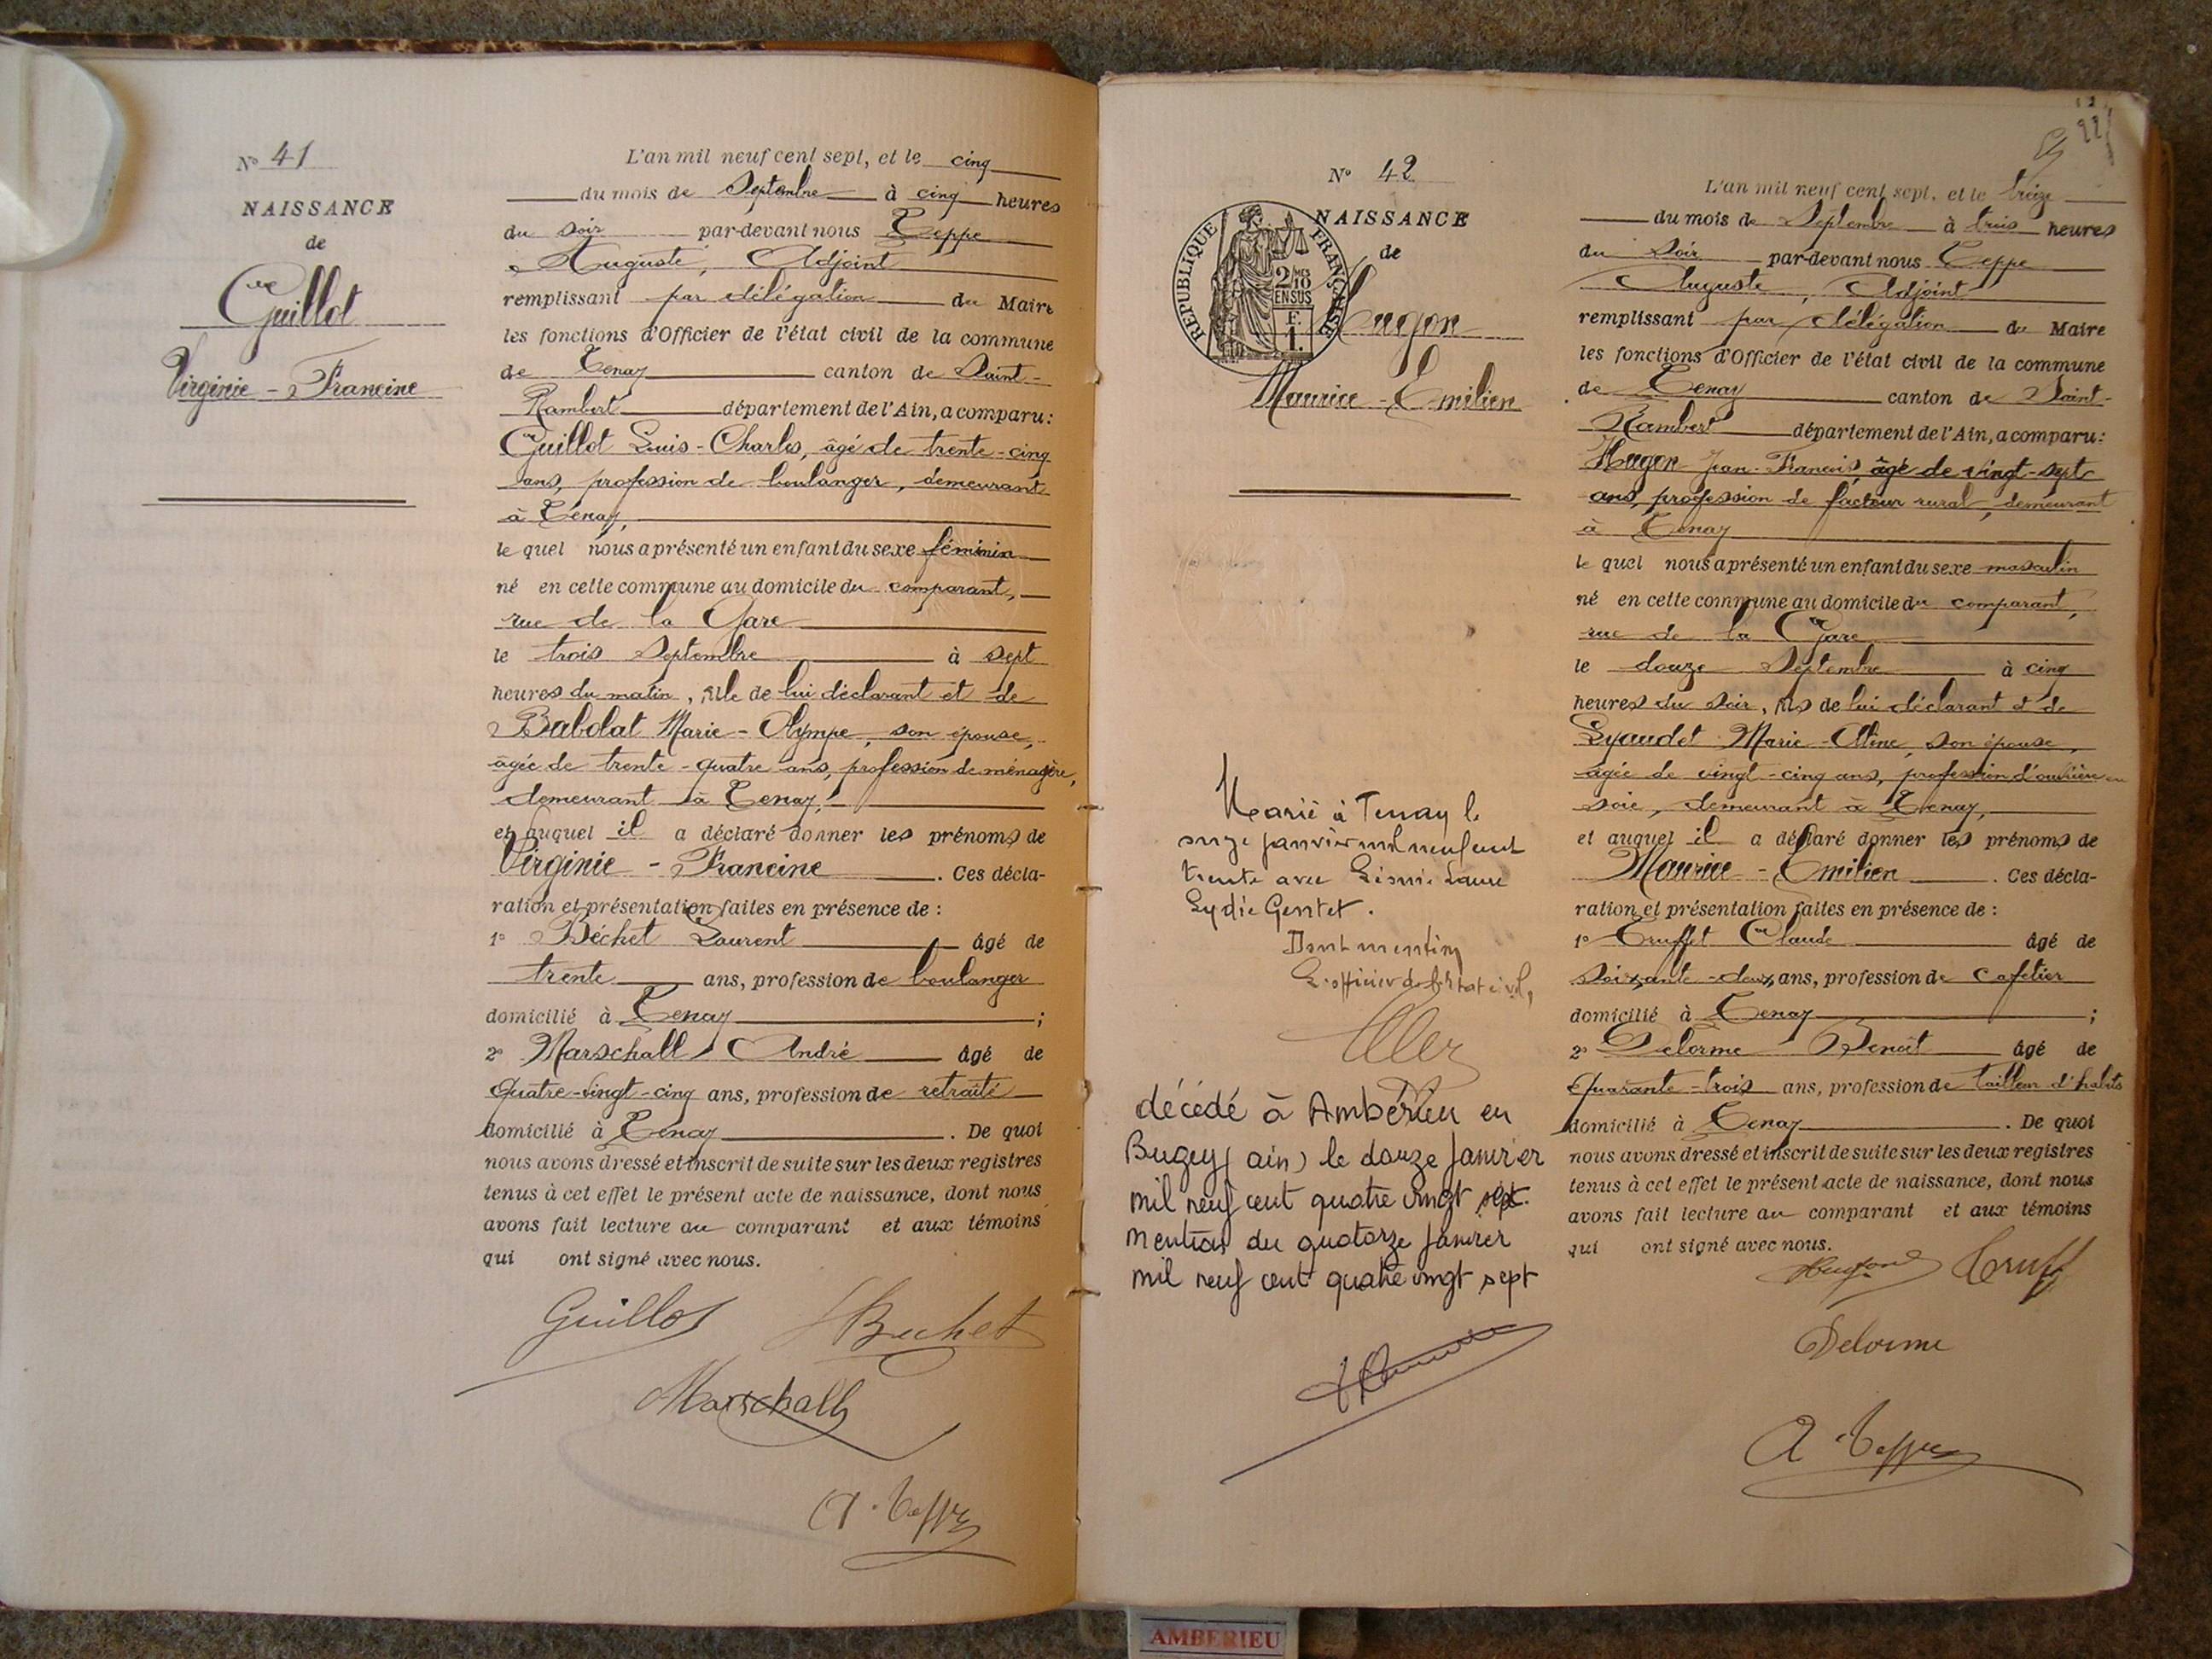 Nº 41
NAISSANCE
de
Guillot
Virginie - Francine
L'an mil neuf cent sept, et le cinq
du mois de Septembre à cinq heures
du soir par-devant nous Teppe
Auguste, Adjoint
remplissant par délégation du Maire
les fonctions d'Officier de l'état civil de la commune
de Tenay canton de Saint-
Rambert département de l'Ain, a comparu:
Guillot Louis-Charles, âgé de trente-cinq
ans, profession de boulanger, demeurant
à Tenay,
le quel nous a présenté un enfant du sexe féminin
né en cette commune au domicile du comparant,
rue de la Gare
le trois Septembre à sept
heures du matin, fille de lui déclarant et de
Babolat Marie-Olympe, son épouse,
âgée de trente-quatre ans, profession de ménagère,
demeurant à Tenay,
et auquel il a déclaré donner les prénoms de
Virginie - Francine. Ces décla-
ration et présentation faites en présence de :
1º Béchet Laurent âgé de
trente ans, profession de boulanger
domicilié à Tenay ;
2º Marschall André âgé de
quatre-vingt-cinq ans, profession de retraité
domicilié à Tenay. De quoi
nous avons dressé et inscrit de suite sur les deux registres
tenus à cet effet le présent acte de naissance, dont nous
avons fait lecture au comparant et aux témoins
qui ont signé avec nous.
Guillot Bechet
Marschall
A. Teppe
Nº 42
NAISSANCE
de
RÉPUBLIQUE FRANÇAISE
2/10 EN SUS
Hugon
Maurice - Emilien
Marié à Tenay le
onze janvier mil neuf cent
trente avec Laure
Lydie Gentet.
Dont mention
L'officier de l'état civil,
décédé à Ambérieu en
Bugey (ain) le douze Janvier
mil neuf cent quatre vingt sept.
Mention du quatorze Janvier
mil neuf cent quatre vingt sept
L'an mil neuf cent sept, et le treize
du mois de Septembre à trois heures
du soir par-devant nous Teppe
Auguste, Adjoint
remplissant par délégation du Maire
les fonctions d'Officier de l'état civil de la commune
de Tenay canton de Saint-
Rambert département de l'Ain, a comparu:
Hugon Jean-François, âgé de vingt-sept
ans, profession de facteur rural, demeurant
à Tenay
le quel nous a présenté un enfant du sexe masculin
né en cette commune au domicile du comparant,
rue de la Gare
le douze Septembre à cinq
heures du soir, fils de lui déclarant et de
Lyaudet Marie-Aline, son épouse,
âgée de vingt-cinq ans, profession d'ouvrière en
soie, demeurant à Tenay,
et auquel il a déclaré donner les prénoms de
Maurice - Emilien. Ces décla-
ration et présentation faites en présence de :
1º Truffet Claude âgé de
soixante-deux ans, profession de cafetier
domicilié à Tenay ;
2º Delorme Benoît âgé de
quarante-trois ans, profession de tailleur d'habits
domicilié à Tenay. De quoi
nous avons dressé et inscrit de suite sur les deux registres
tenus à cet effet le présent acte de naissance, dont nous
avons fait lecture au comparant et aux témoins
qui ont signé avec nous.
Hugon
Delorme
A. Teppe
AMBERIEU